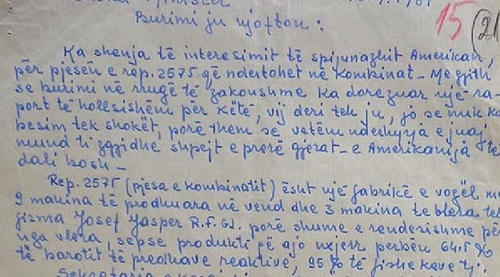 15
Burimi ju njofton:
Ka shenja të interesimit të spijunazhit Amerikan,
për pjesën e rep. 2575 që ndodhet në kombinat - Me gjith
se burimi në rrugë të zakoushme ka dorëzuar një ra-
port të hollsishëm për këtë, vij deri tek ju, jo se nuk ka
besim tek shokët, porë them se vetëm ndërhyrja e juaj
mund ti zgjidhe shpejt e prerë gjërat - e Amerikanija të
dali bosh -
Rep. 2575 (pjesa e kombinatit) ësht një fabrikë e vogël me
9 makina të prodhuara në vend dhe 3 makina të blera te
firma Josef Jasper R.F.GJ. porë shumë e rëndësishme për
nga vlera, sepse produkti që ajo nxjerr përbën 64.5 %
të barotit të predhave reaktive, 95 % të fishekëve